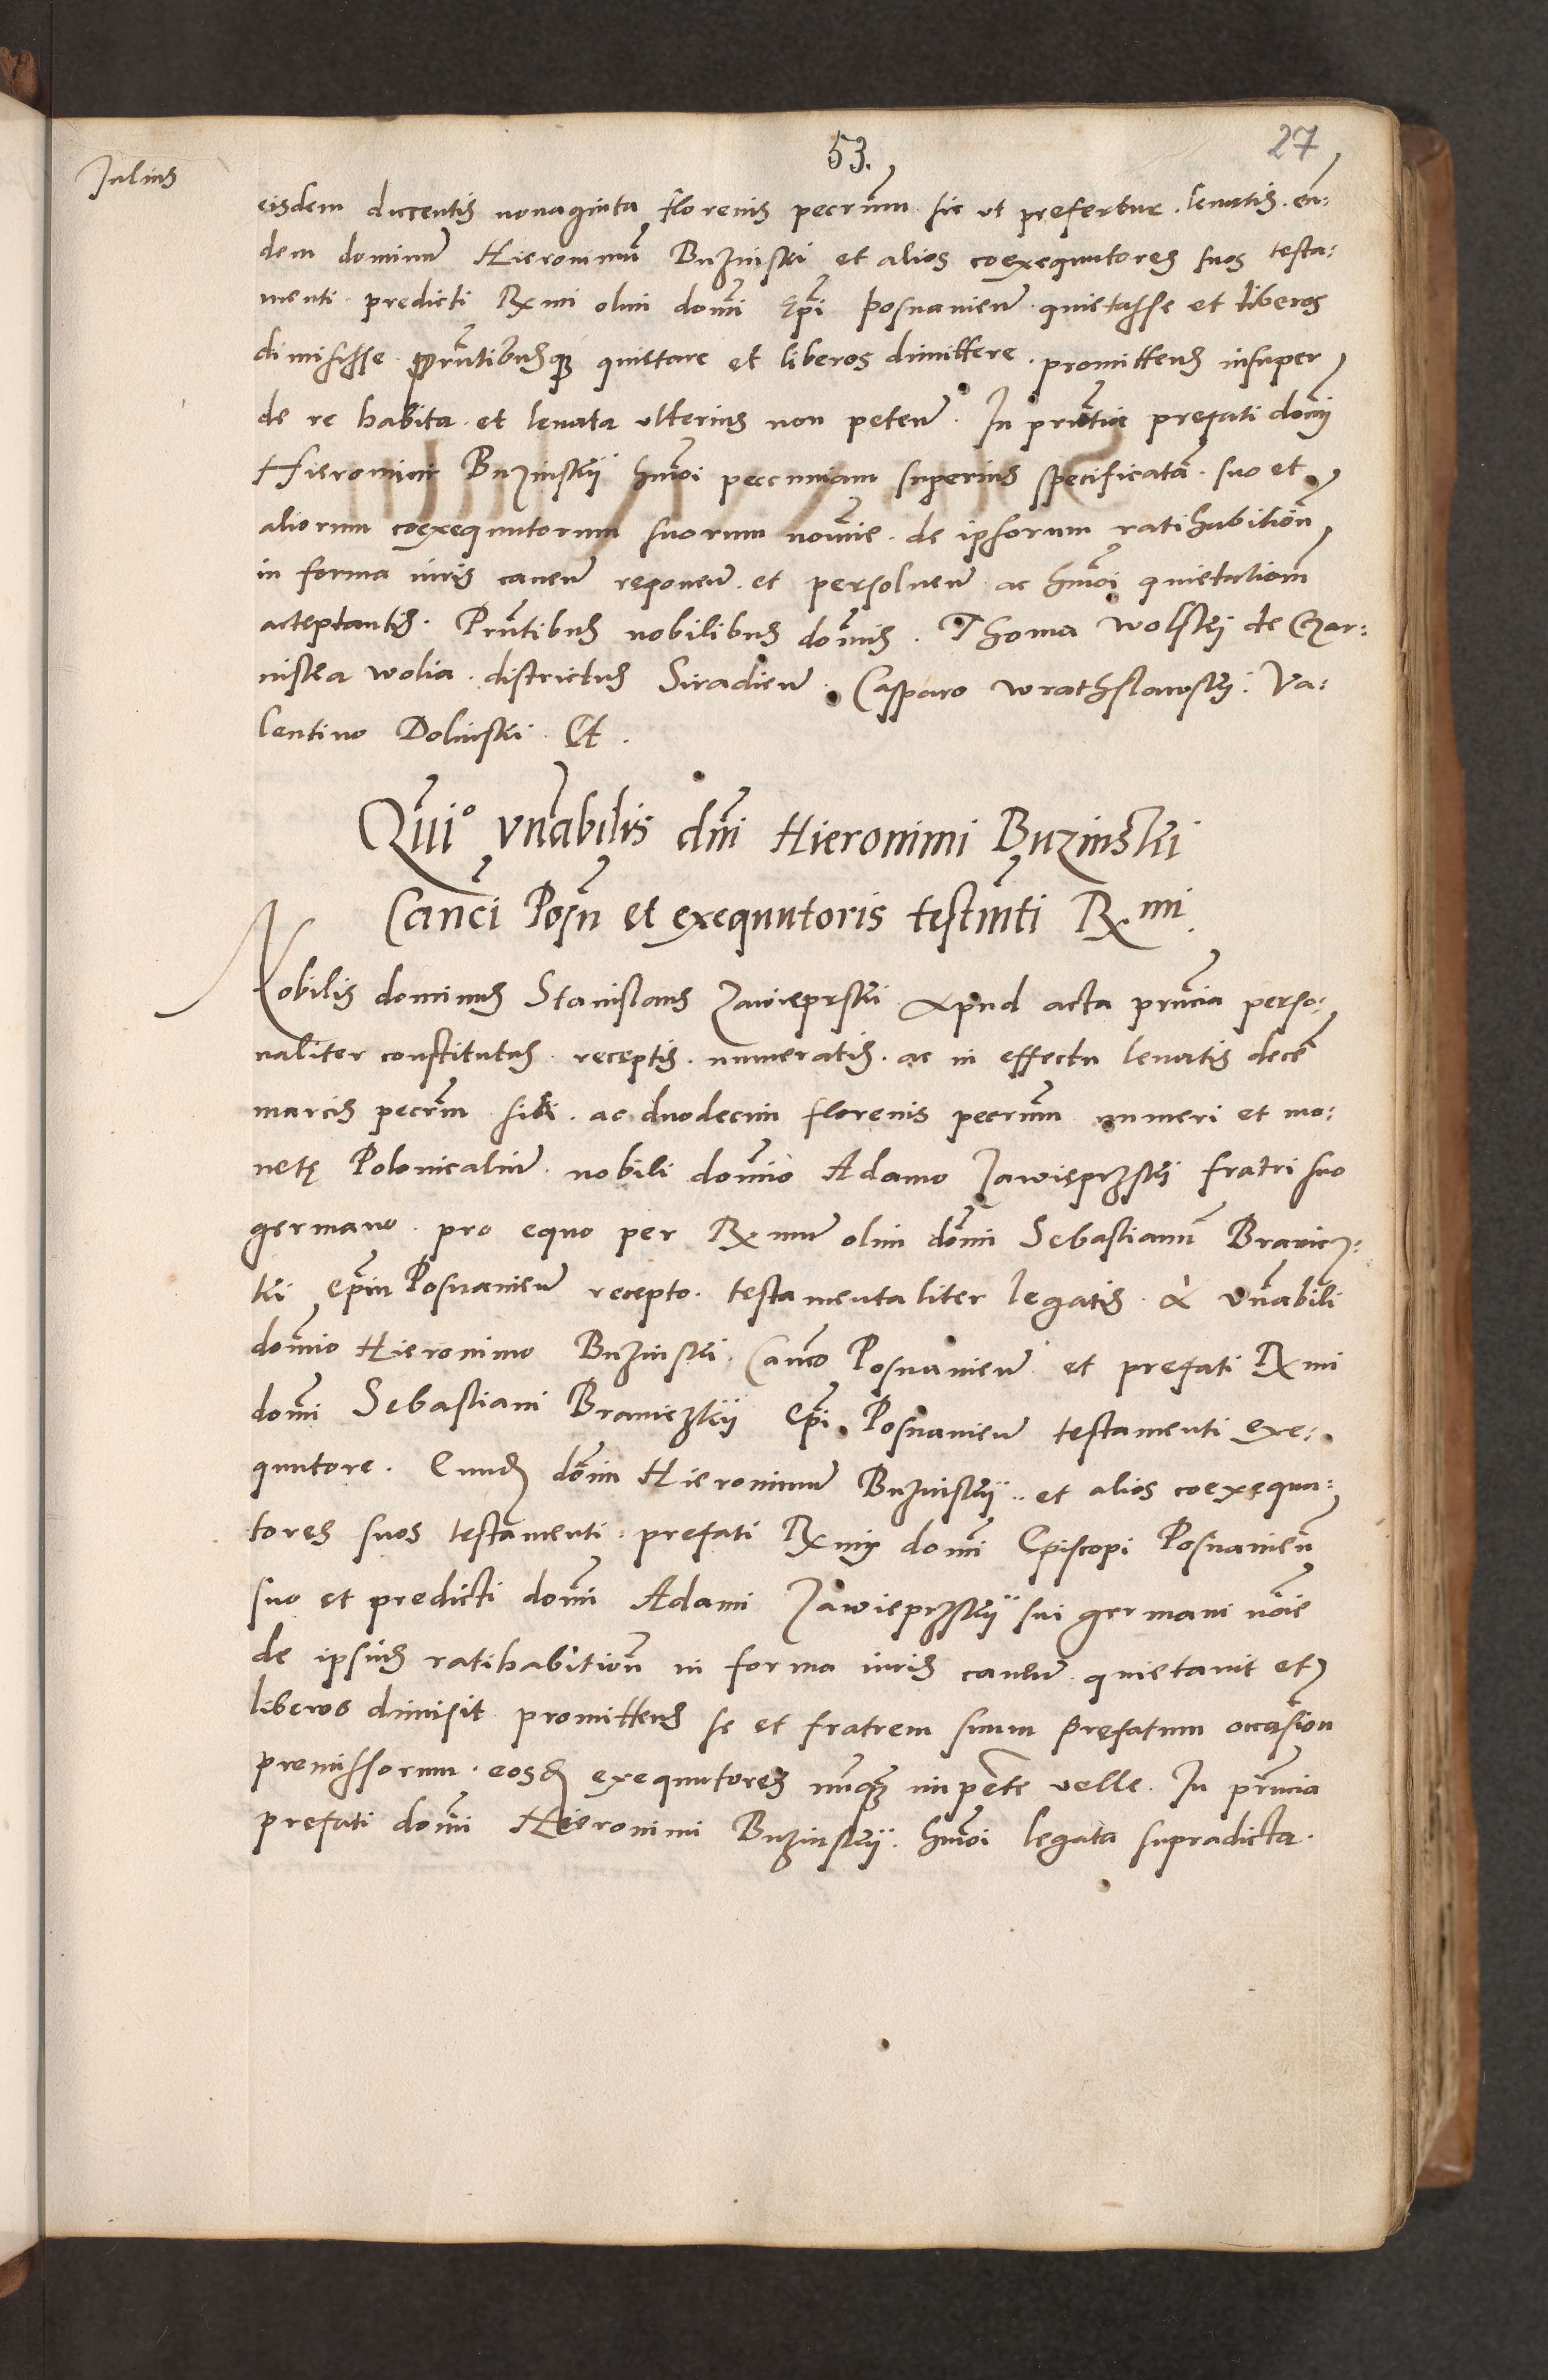 53.
27
Julius
eisdem ducentis nonaginta florenis pecrum̄ sic ut prefertur. levatis. eun̄:
dem dominum Hieronimum̄ Buzinski et alios coexequutores suos testa:
menti predicti Rx̄mi olim domī Epī Posnanien̄ quietasse et liberos
dimisisse. prn̄tibusq̄ꝫ quietare et liberos dimittere. promittens insuper
de re habita et levata ulterius non peten̄. In prn̄tia prefati domī
Hieronimi Buzinskij hm̄oi peccuniam superius specificatā. suo et
aliorum coexequutorum suorum nomīe. de ipsorum ratihabition̄
in forma iuris caven̄ reponen̄. et persolven̄ ac hm̄oi quietation̄
acceptantis. Prn̄tibus nobilibus domīs. Thoma Wolski de Czar:
niska wolia. districtus Siradien̄. Casparo Wrathslawski. Va:
lentino Dolinski. Et.
Qui̅o vn̄abilis dn̄i Hieronimi Buzinski
Canc̄i Posn̄ et exequutoris testm̄ti Rx̄mi.
Nobilis dominus Stanislaus Zawieprski Apud acta prn̄cia perso:
naliter constitutus. receptis. numeratis. ac in effectu levatis decē
marcis pecrm̄ sibi. ac duodecim florenis pecrum̄ numeri et mo:
netę Polonicalium̄. nobili domīo Adamo Zawieprzski fratri suo
germano. pro equo per Rx̄mum olim domī Sebastianum̄ Branicz:
ki Epīm Posnanien̄ recepto. testamentaliter legatis. A vn̄abili
domīo Hieronimo Buzinski. Canc̄o Posnanien̄ et prefati Rx̄mi
domī Sebastiani Braniczkij Epī Posnanien̄ testamenti exe:
quutore. Eundꝫ domīm Hieronimum Buzinskij et alios coexequu:
tores suos testamenti. prefati Rx̄mi domī Episcopi Posnanien̄
suo et predicti domī Adami Zawieprzskij sui germani nōīe
de ipsius ratihabition̄ in forma iuris caven̄ quietavit et
liberos dimisit promittens se et fratrem suum prefatum occasion̄
premissorum. eosdꝫ exequutores nunq̄ꝫ impetē velle. In prn̄cia
prefati domī Hieronimi Buzinskij. hm̄oi legata supradicta.